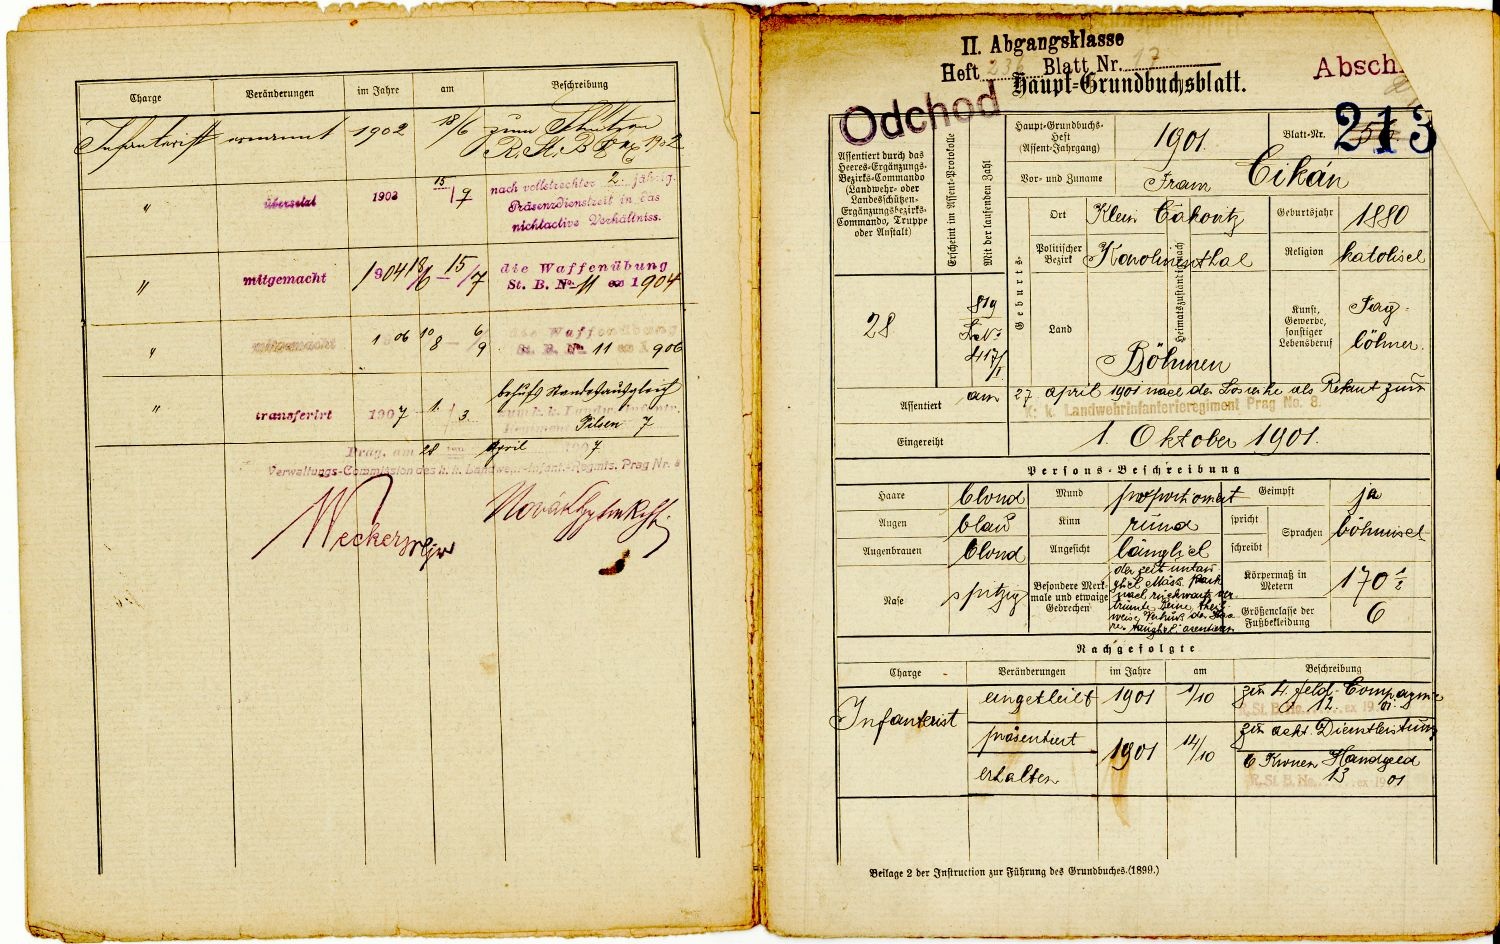 Charge Veränderungen im Jahre am Beschreibung
Infanterist ernannt 1902 18/6 zum Schützen
R. St. B. ex 1902
" übersetzt 1903 15/7 nach vollstreckter 2 jährig.
Präsenzdienstzeit in das
nichtactive Verhältniss.
" mitgemacht 1904 18/6 – 15/7 die Waffenübung
St. B. No 11 ex 1904
" mitgemacht 1906 10/8 – 6/9 die Waffenübung
St. B. No 11 ex 1906
" transferirt 1907 1./3. behufs Standesausgleich
zum k. k. Landw. Infantr.
Regiment Pilsen 7
Prag, am 28 ten April 1907
Verwaltungs-Commission des k. k. Landwehr-Infant.-Regmts. Prag Nr. 8
II. Abgangsklasse
Heft 236 Blatt Nr. 17
Absch.
Haupt-Grundbuchsblatt.
Odchod
213
Assentiert durch das
Heeres-Ergänzungs-
Bezirks-Commando
(Landwehr- oder
Landesschützen-
Ergänzungsbezirks-
Commando, Truppe
oder Anstalt)
28
Erscheint im Assent-Protokolle
Mit der laufenden Zahl
819
417/I
Haupt-Grundbuchs-
Heft
(Assent-Jahrgang)
1901.
Blatt-Nr.
Vor- und Zuname Franz Cikán
Geburts-
Heimatszuständig nach
Ort Klein Čakovitz
Geburtsjahr 1880
Politischer
Bezirk Karolinenthal
Religion katolisch
Land Böhmen
Kunst,
Gewerbe,
sonstiger
Lebensberuf
Tag-
löhner.
Assentiert am 27 april 1901 nach der Losreihe als Rekrut zum
K. k. Landwehrinfanterieregiment Prag No. 8.
Eingereiht 1. Oktober 1901.
Persons-Beschreibung
Haare blond Mund proportioniert Geimpft ja
Augen blau Kinn rund spricht
schreibt Sprachen böhmisch
Augenbrauen blond Angesicht länglich
Nase spitzig
Besondere Merk-
male und etwaige
Gebrechen
Körpermaß in
Metern 170 ½
Größenclasse der
Fußbekleidung 6
Nachgefolgte
Charge Veränderungen im Jahre am Beschreibung
Infanterist eingetheilt 1901 1/10 zur 4. Feld-Compagnie
R. St. B. No. 12 ex 1901
präsentiert 1901 14/10 zur acht. Dienstleistung
erhalten 6 Kronen Handgeld
R. St. B. No. 13 ex 1901
Beilage 2 der Instruction zur Führung des Grundbuches. (1899.)